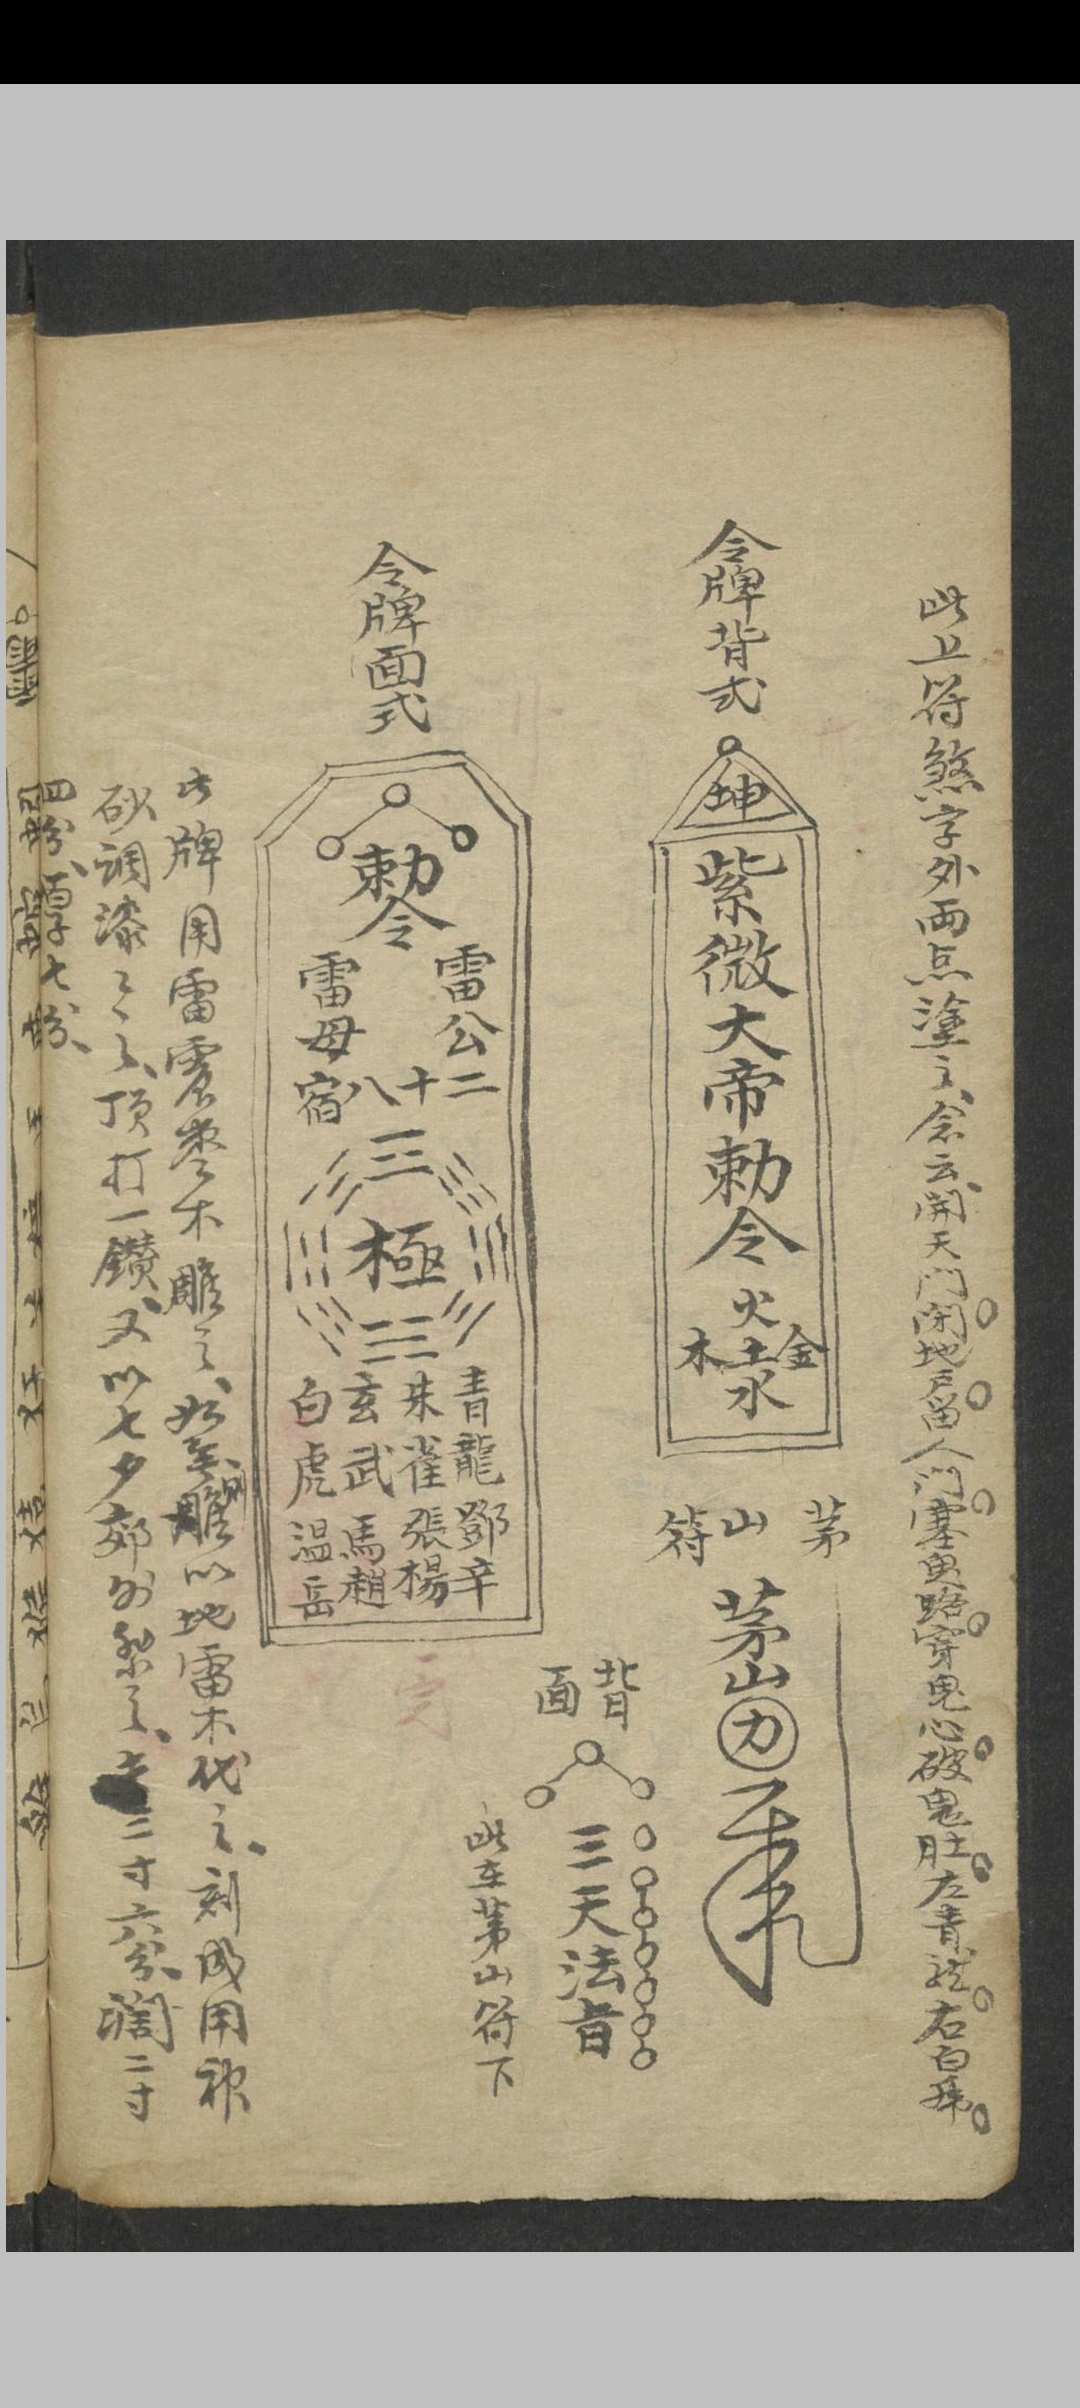 此上符煞字外兩点塗之、念云、開天門閉地户留人门塞鬼路穿鬼心破鬼肚左青龍右白虎
令牌背式
坤
紫微大帝勅令
火
木土金
水
茅山符
茅山
力
背面
三天法旨
此在茅山符下
令牌面式
勅令
雷公
雷母
二十八宿
極
青龍鄧辛
朱雀張楊
玄武馬趙
白虎温岳
此牌用雷震枣木雕之、以地雷木代之、刻成用
砂調漆之、頂打一鑽、又以七夕郊外祭之、二寸六分、濶二寸
四分、厚七分、